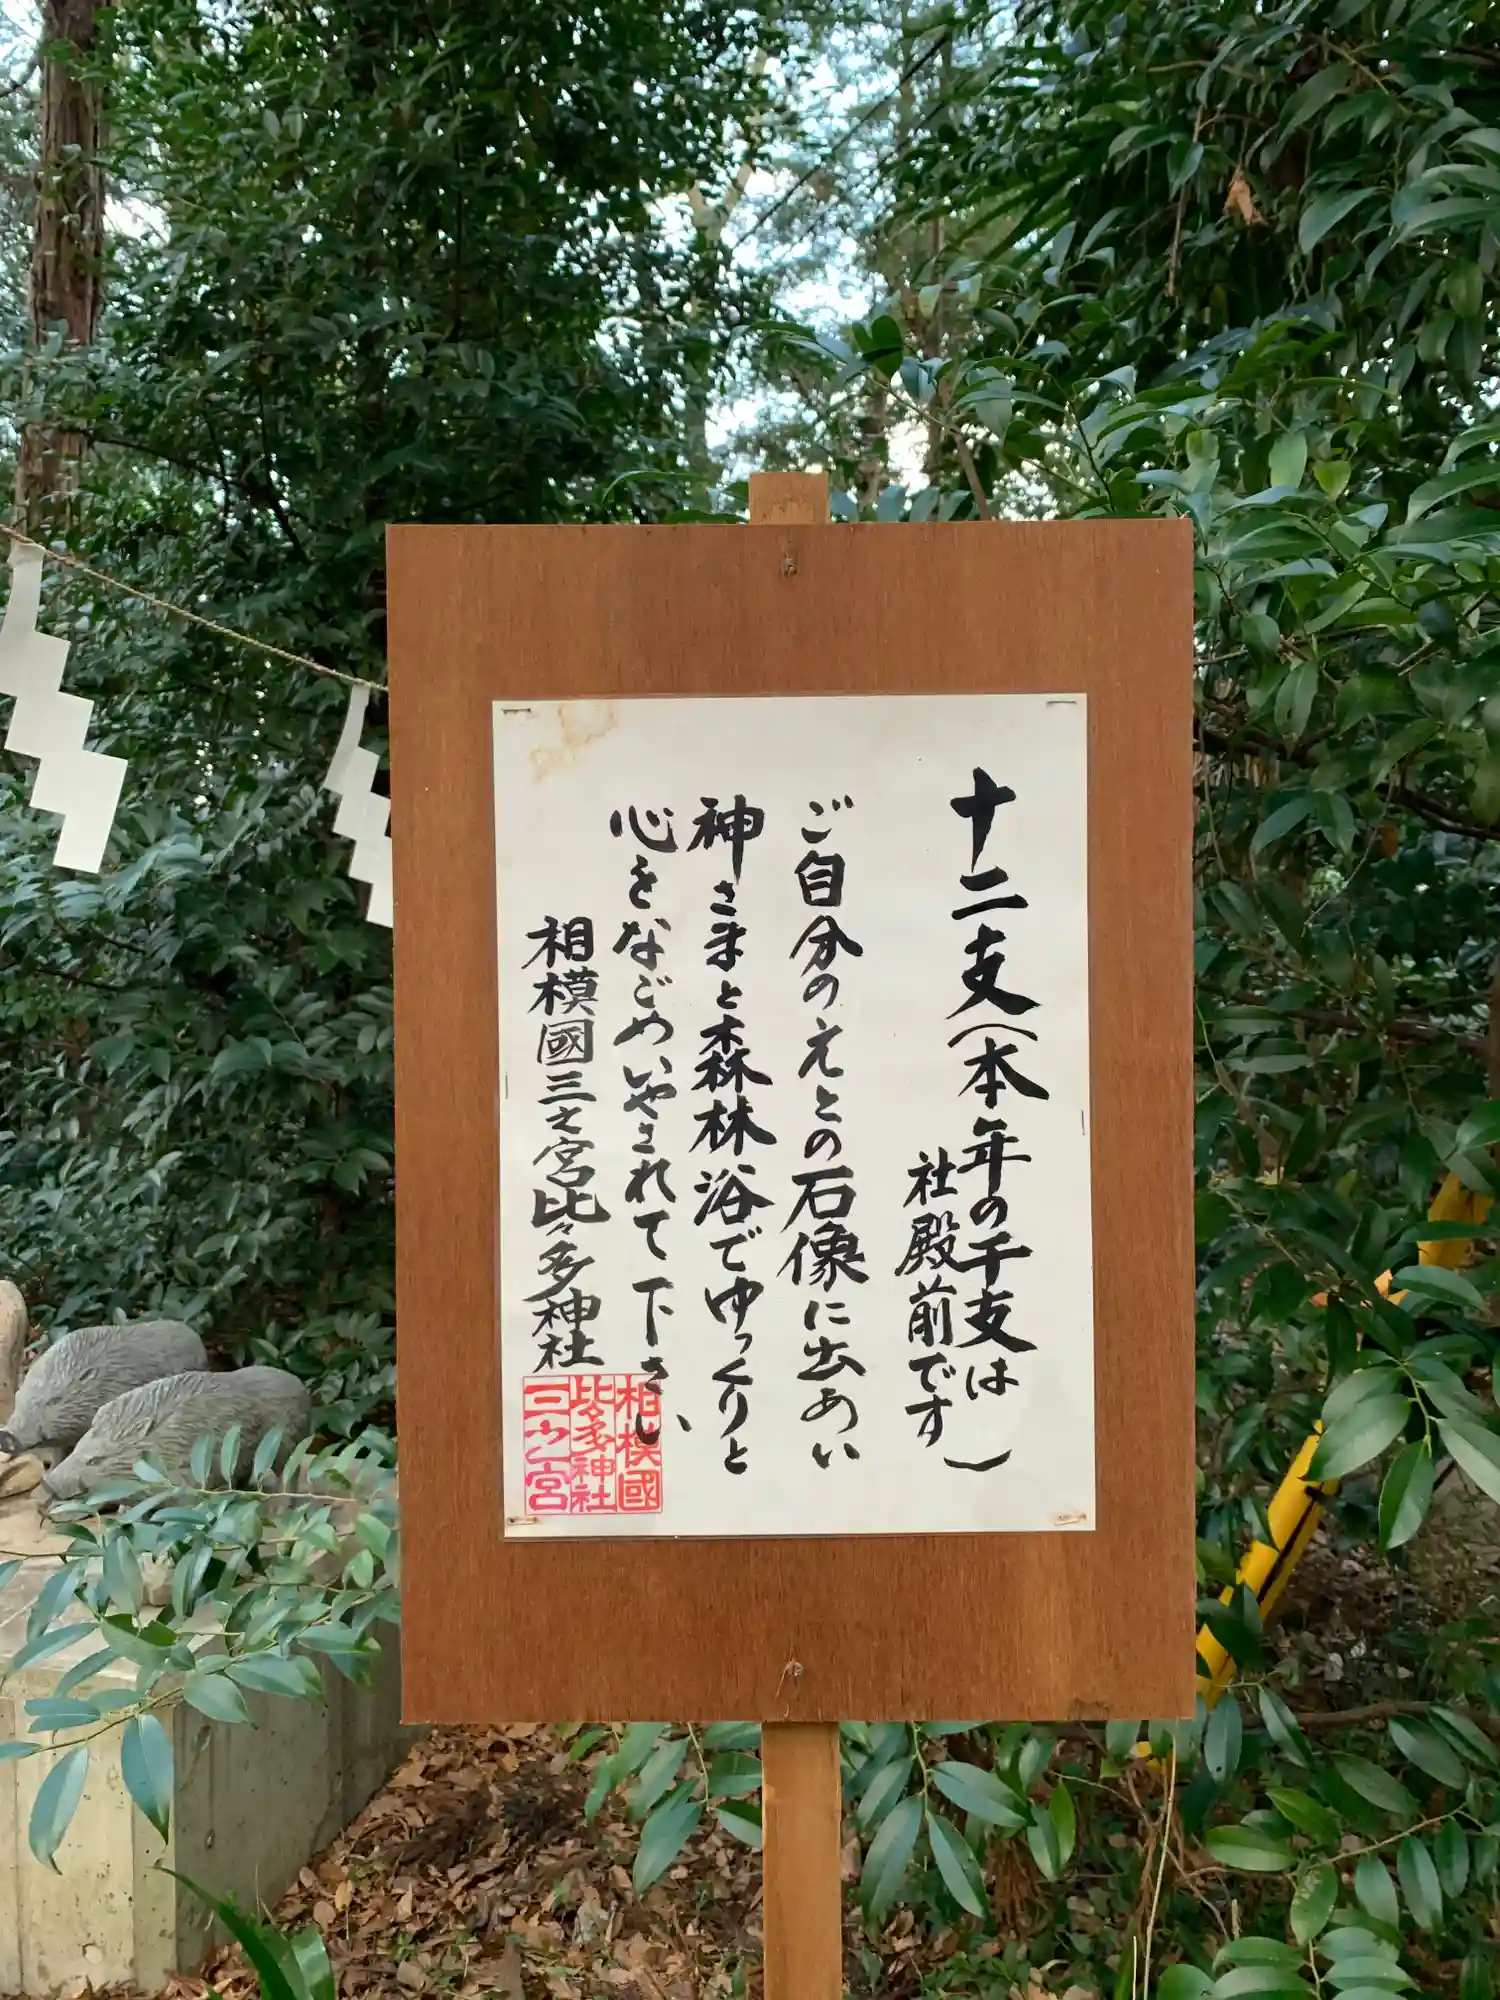 十二支(本年の干支は
社殿前です)
ご自分のえとの石像に出あい
神さまと森林浴でゆっくりと
心をなごめいやされて下さい
相模國三之宮比々多神社
相模國
比々多神社
三之宮